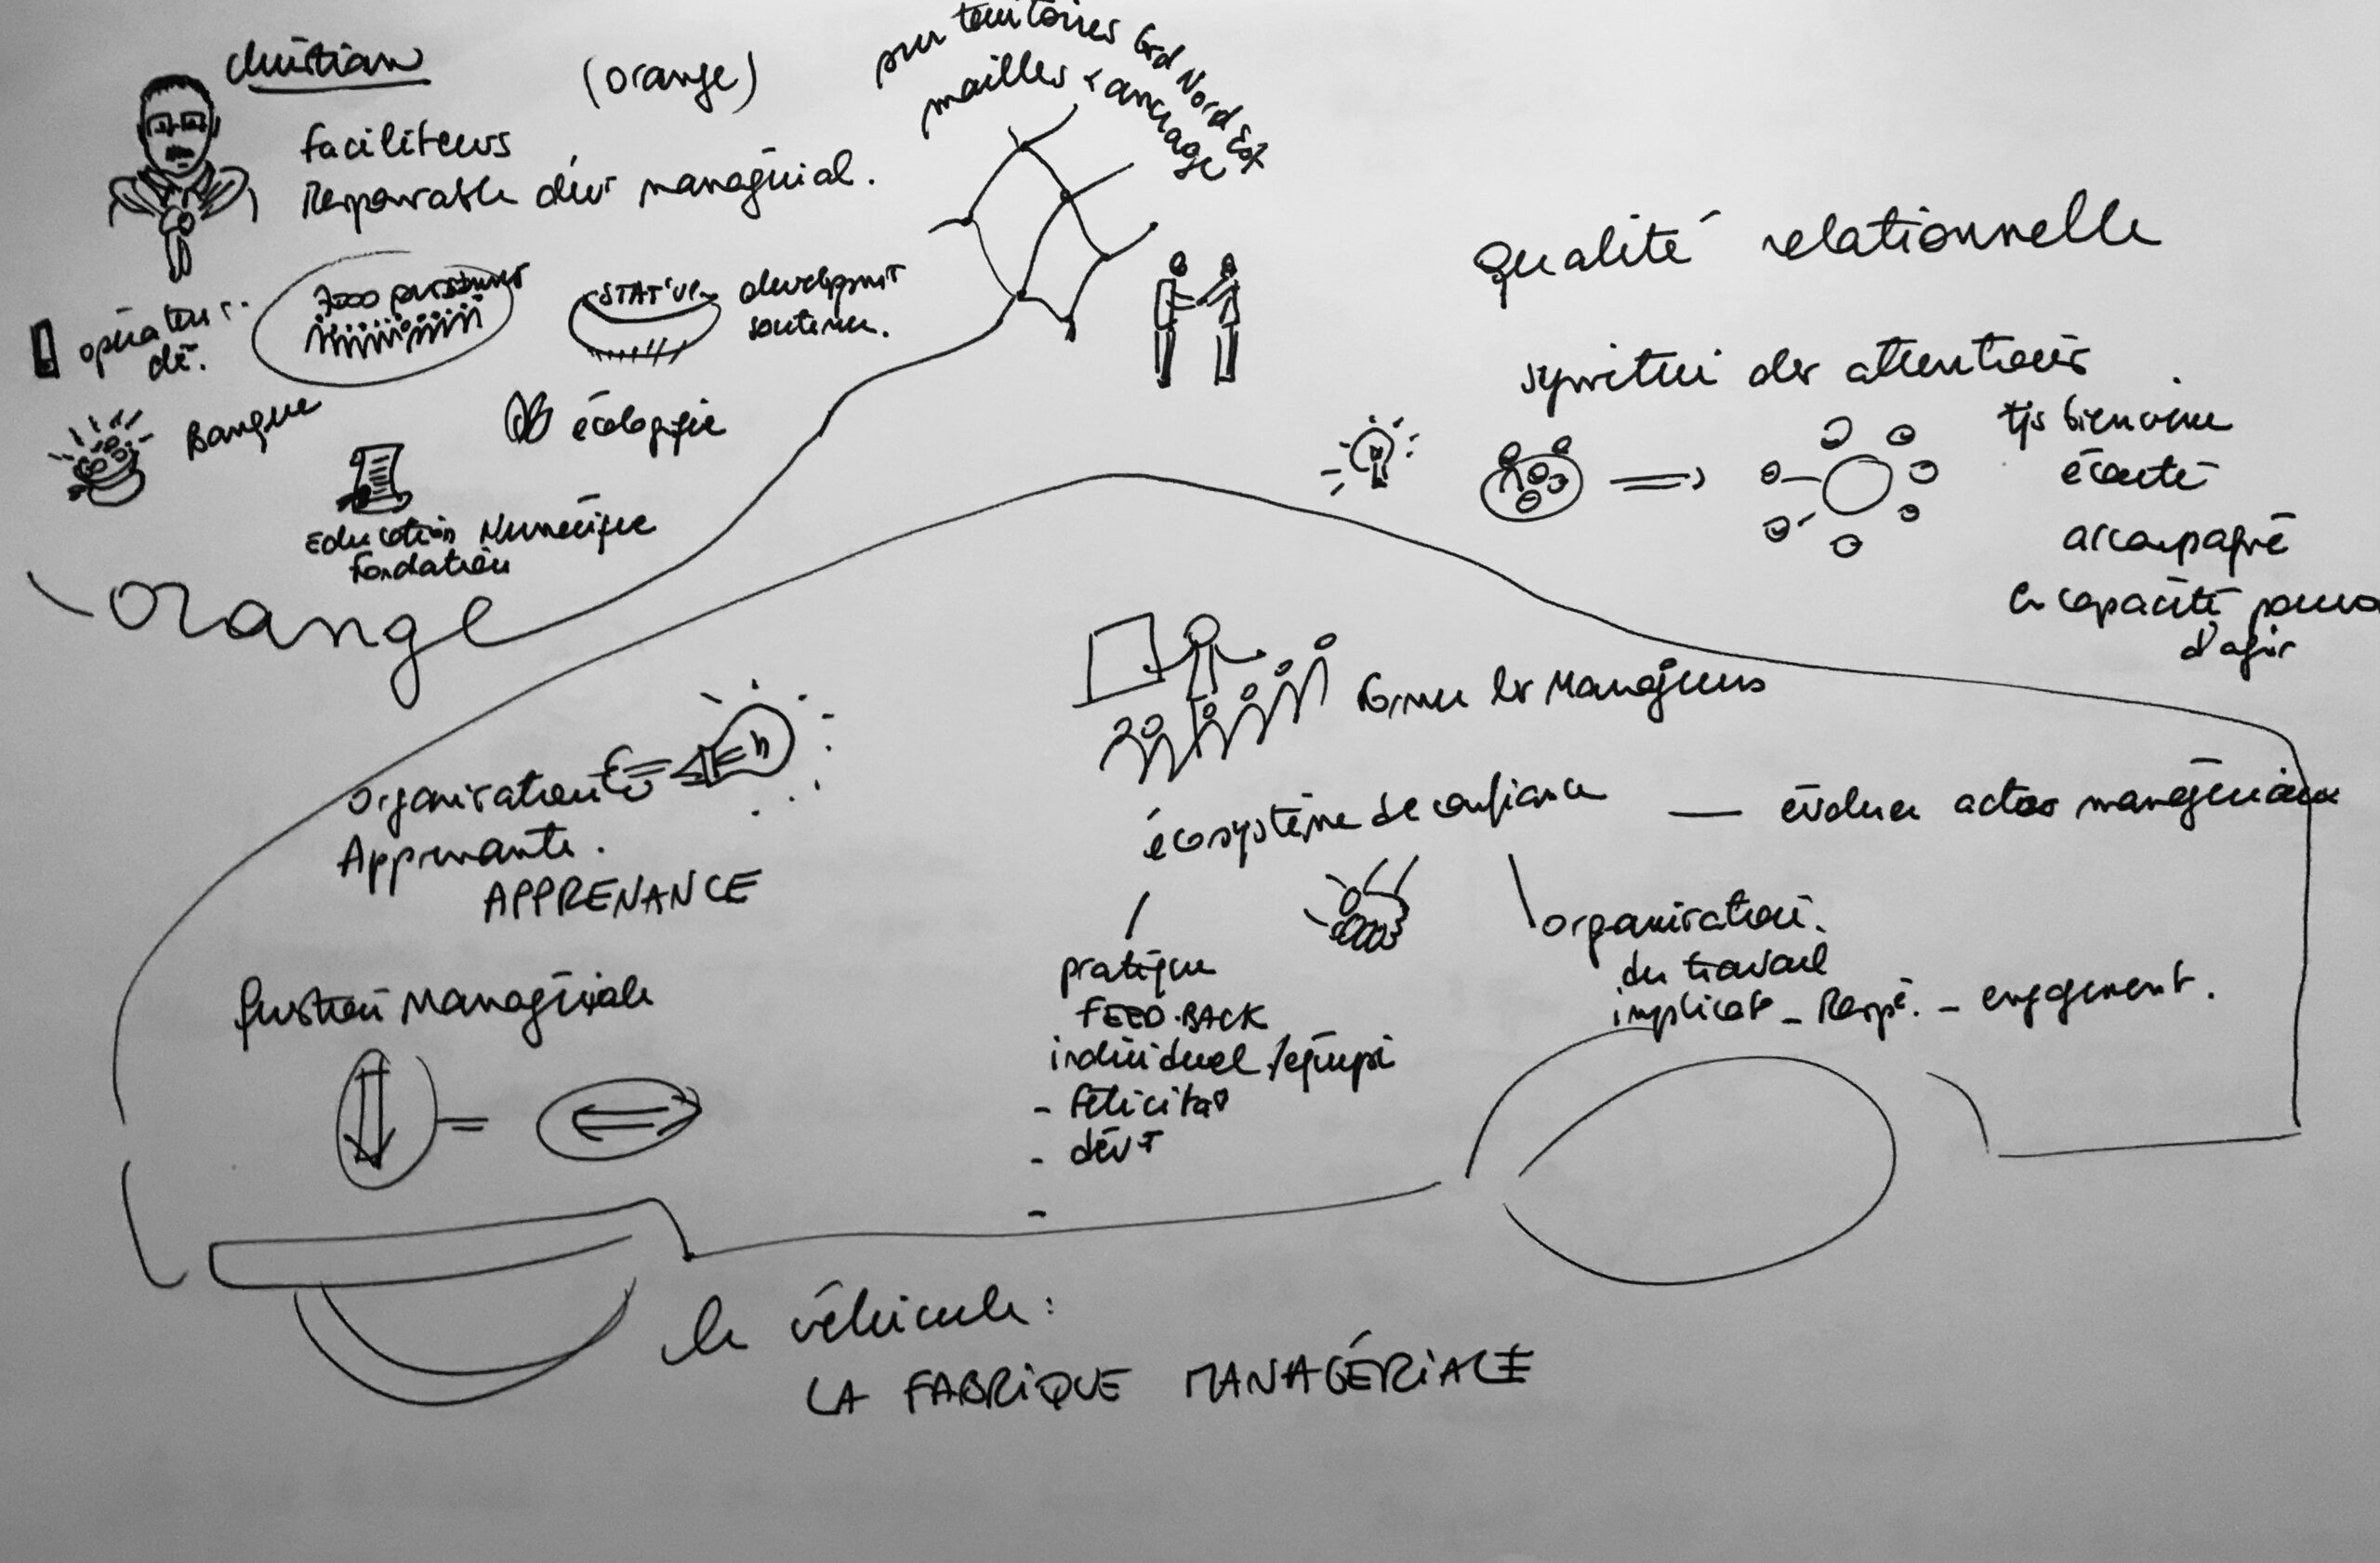 Christian
(orange)
faciliteurs
Responsable dévt managérial.
sur territoires Grd Nord Est
mailles + ancrage
opérateur
dé.
7000 personnes
développmt
soutenu.
Banque
écologique
Education Numérique
Fondation
orange
Qualité relationnelle
symétrie des attentions
tjs bienvenu
écouté
accompagné
en capacité
d'agir
Former les Managers
Organisation
Apprenante.
APPRENANCE
écosystème de confiance — évoluer actes managériaux
pratique
FEED-BACK
individuel / équipe
- félicitat°
- dévt
-
organisation.
du travail
implicat° - Resp. - engagement.
gestion Managériale
=
le véhicule :
LA FABRIQUE MANAGÉRIALE